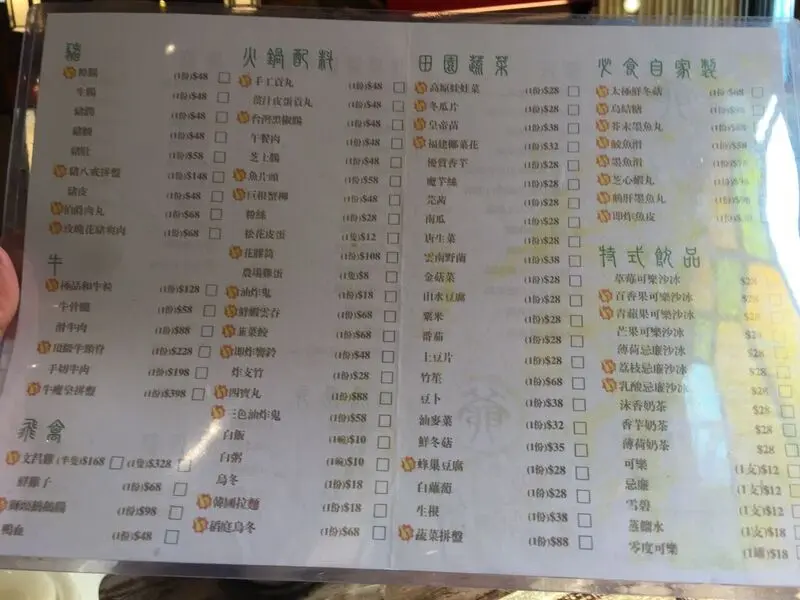 豬
(1份)$48
生腸 (1份)$48
豬膶 (1份)$48
(1份)$48
豬肚 (1份)$58
豬八戒拼盤 (1份)$148
豬皮 (1份)$48
伯爵肉丸 (1份)$68
玫瑰花豬爽肉 (1份)$68
牛
極品和牛粒 (1份)$128
牛骨髓 (1份)$58
滑牛肉 (1份)$88
頂級牛頸脊 (1份)$228
手切牛肉 (1份)$198
牛魔皇拼盤 (1份)$398
飛禽
文昌雞 (半隻)$168 (1隻)$328
鮮雞子 (1份)$68
獅頭鵝鵝腸 (1份)$98
鴨血 (1份)$48
火鍋配料
手工貢丸 (1份)$48
爆汁皮蛋貢丸 (1份)$48
台灣黑椒腸 (1份)$48
午餐肉 (1份)$48
芝士腸 (1份)$48
魚片頭 (1份)$58
巨根蟹柳 (1份)$48
粉絲 (1份)$28
松花皮蛋 (1隻)$12
花膠筒 (1份)$108
農場雞蛋 (1隻)$8
油炸鬼 (1份)$18
鮮蝦雲吞 (1份)$68
韭菜餃 (1份)$68
即炸響鈴 (1份)$48
炸支竹 (1份)$28
四寶丸 (1份)$88
三色油炸鬼 (1份)$58
白飯 (1碗)$10
白粥 (1份)$10
烏冬 (1份)$18
韓國拉麵 (1份)$18
稻庭烏冬 (1份)$68
田園蔬菜
高原娃娃菜 (1份)$28
冬瓜片 (1份)$28
皇帝苗 (1份)$38
福建椰菜花 (1份)$32
優質香芋 (1份)$28
魔芋絲 (1份)$28
芫茜 (1份)$28
南瓜 (1份)$28
唐生菜 (1份)$28
雲南野菌 (1份)$38
金菇菜 (1份)$28
山水豆腐 (1份)$28
粟米 (1份)$28
番茄 (1份)$28
土豆片 (1份)$28
竹笙 (1份)$68
豆卜 (1份)$38
油麥菜 (1份)$32
鮮冬菇 (1份)$35
蜂巢豆腐 (1份)$28
白蘿蔔 (1份)$28
生根 (1份)$38
蔬菜拼盤 (1份)$88
必食自家製
太極鮮冬菇 (1份)$68
烏結糖
芥末墨魚丸 (1份)$68
鯪魚滑
墨魚滑
芝心蝦丸
鵝肝墨魚丸
即炸魚皮
特式飲品
草莓可樂沙冰 $28
百香果可樂沙冰 $28
青蘋果可樂沙冰 $28
芒果可樂沙冰 $28
薄荷忌廉沙冰 $28
荔枝忌廉沙冰 $28
乳酸忌廉沙冰 $28
沐香奶茶 $28
香芋奶茶 $28
薄荷奶茶 $28
可樂 (1支)$12
忌廉 (1支)$12
雪碧 (1支)$12
蒸餾水 (1支)$18
零度可樂 (1罐)$18